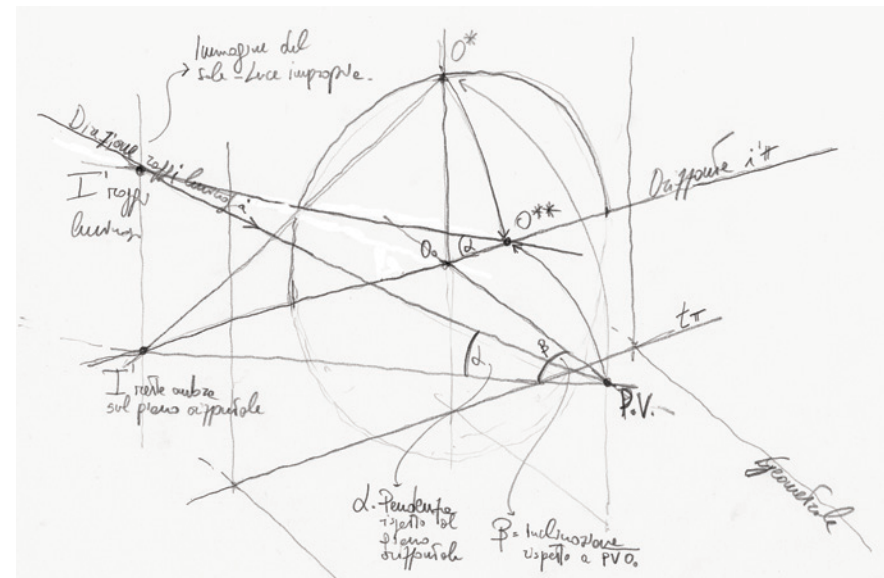 Immagine del
sole - Luce impropria.
O*
Direzione raggi luminosi
I' raggi
luminosi
Orizzonte i'π
O**
O₀
α
tπ
β
α
P.V.
I' rette ombra
sul piano orizzontale
Geometrale
α = Pendenza
rispetto al
piano
orizzontale
β = Inclinazione
rispetto a PVO₀